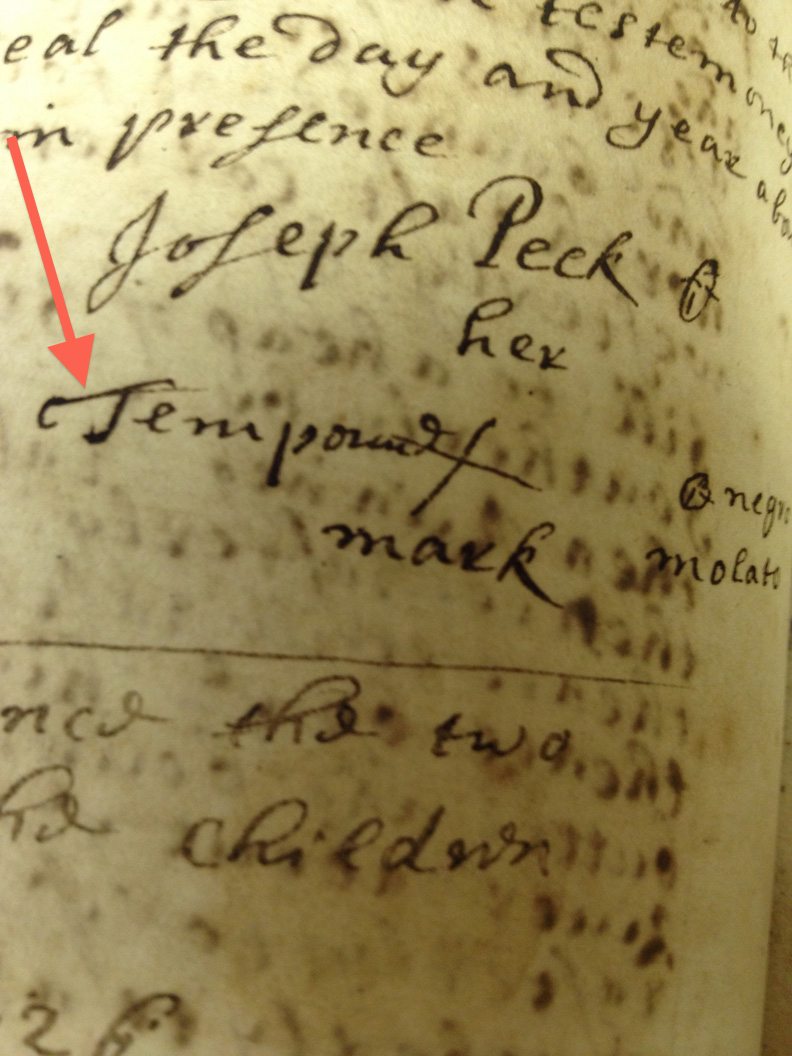 testemoney
eal the day and year abov
in presence
Joseph Peck
her
Tempound
mark
negro
molato
nce the two
he children